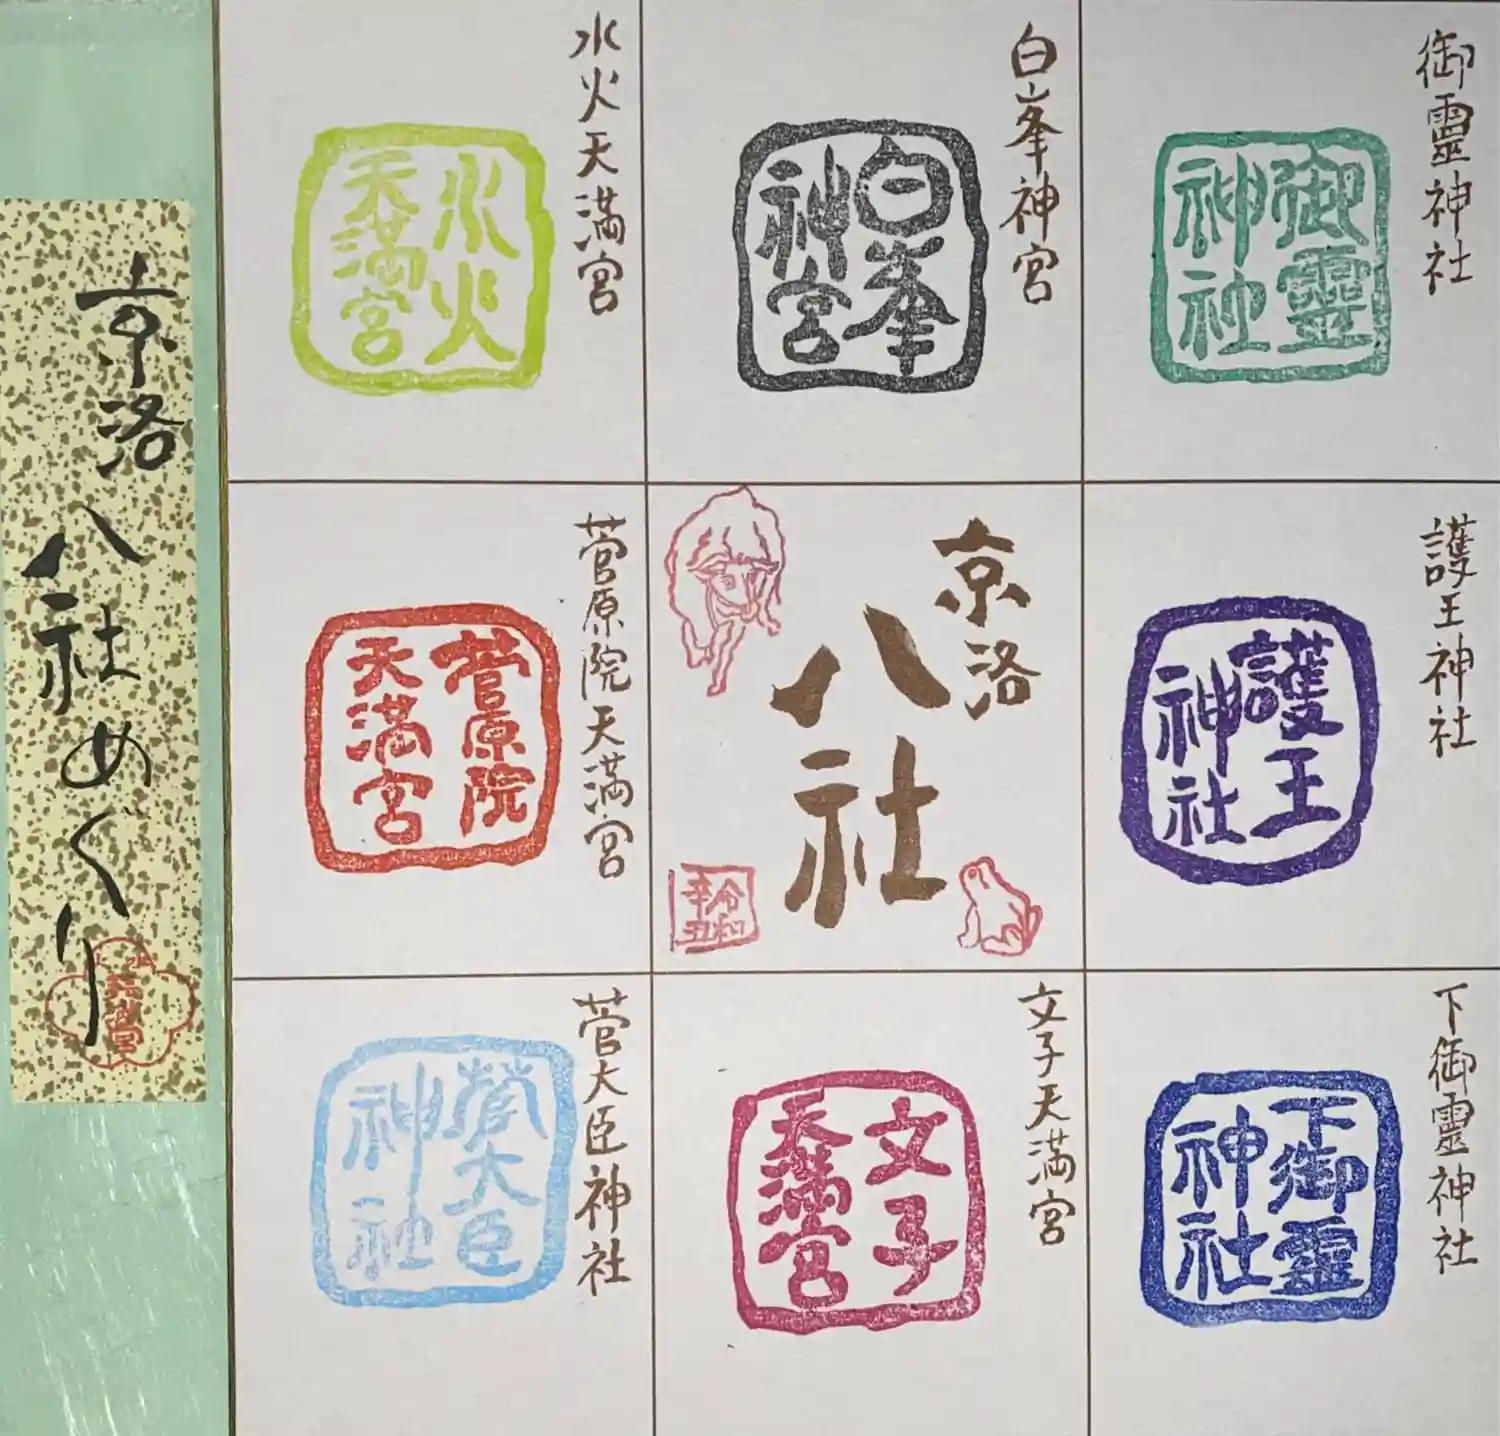 御靈神社
御靈
神社
白峯神宮
白峯
神宮
水火天満宮
水火
天満宮
護王神社
護王
神社
京洛
八社
令和
辛丑
菅原院天満宮
菅原院
天満宮
下御靈神社
下御靈
神社
文子天満宮
文子
天満宮
菅大臣神社
菅大臣
神社
京洛八社めぐり
天満宮